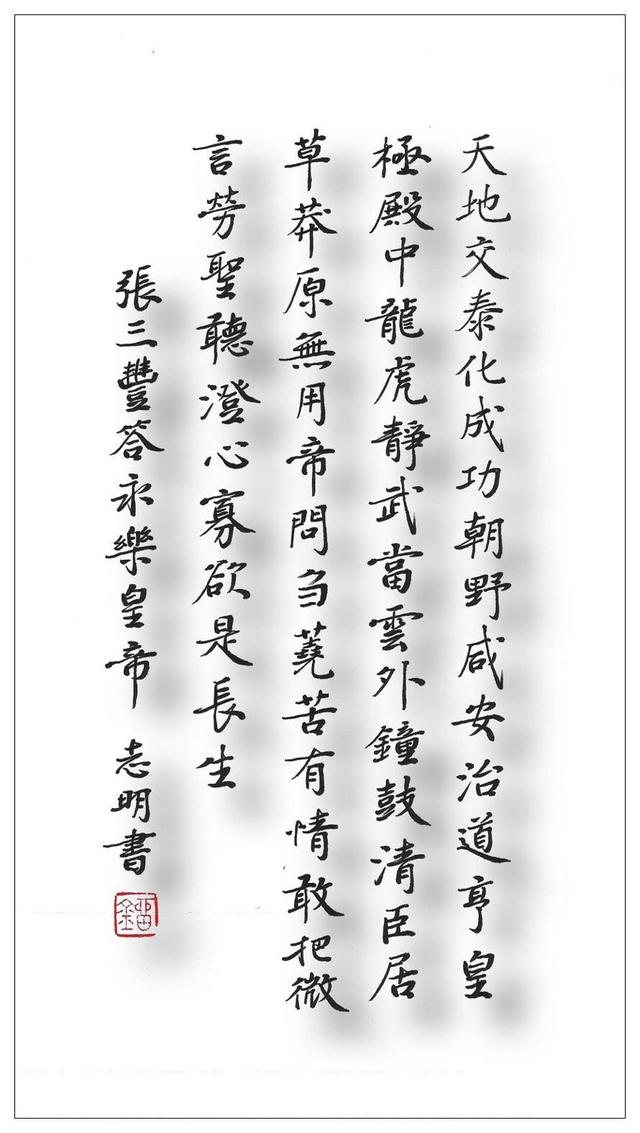 天地交泰化成功朝野咸安治道亨皇
極殿中龍虎靜武當雲外鐘鼓清臣居
草莽原無用帝問芻蕘苦有情敢把微
言勞聖聽澄心寡欲是長生
張三豐答永樂皇帝 志明書